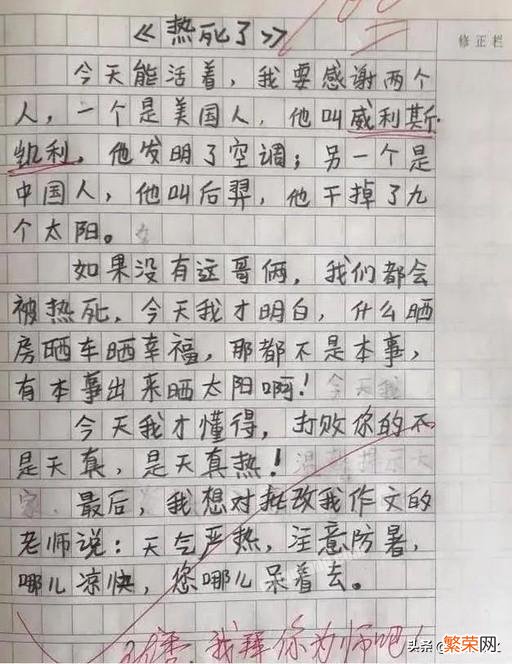 《热死了》
修正栏
今天能活着，我要感谢两个
人，一个是美国人，他叫威利斯
凯利，他发明了空调；另一个是
中国人，他叫后羿，他干掉了九
个太阳。
如果没有这哥俩，我们都会
被热死，今天我才明白，什么晒
房晒车晒幸福，那都不是本事，
有本事出来晒太阳啊！
今天我才懂得，打败你的不
是天真，是天真热！
最后，我想对批改我作文的
老师说：天气严热，注意防暑，
哪儿凉快，您哪儿呆着去。
我拜你为师吧！
头条
繁荣网